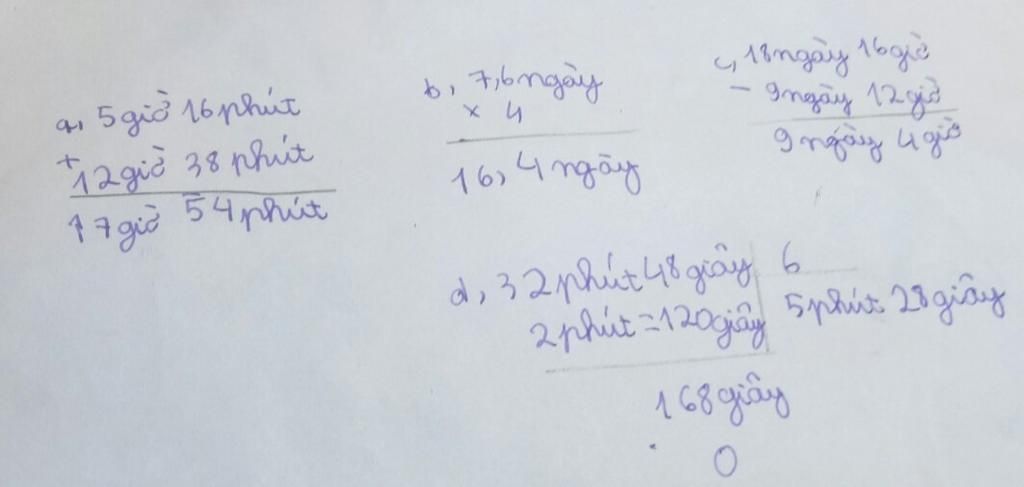 a, 5 giờ 16 phút
+
12 giờ 38 phút
17 giờ 54 phút
b, 7,6 ngày
× 4
16,4 ngày
c, 18 ngày 16 giờ
- 9 ngày 12 giờ
9 ngày 4 giờ
d, 32 phút 48 giây 6
2 phút = 120 giây 5 phút 28 giây
168 giây
0